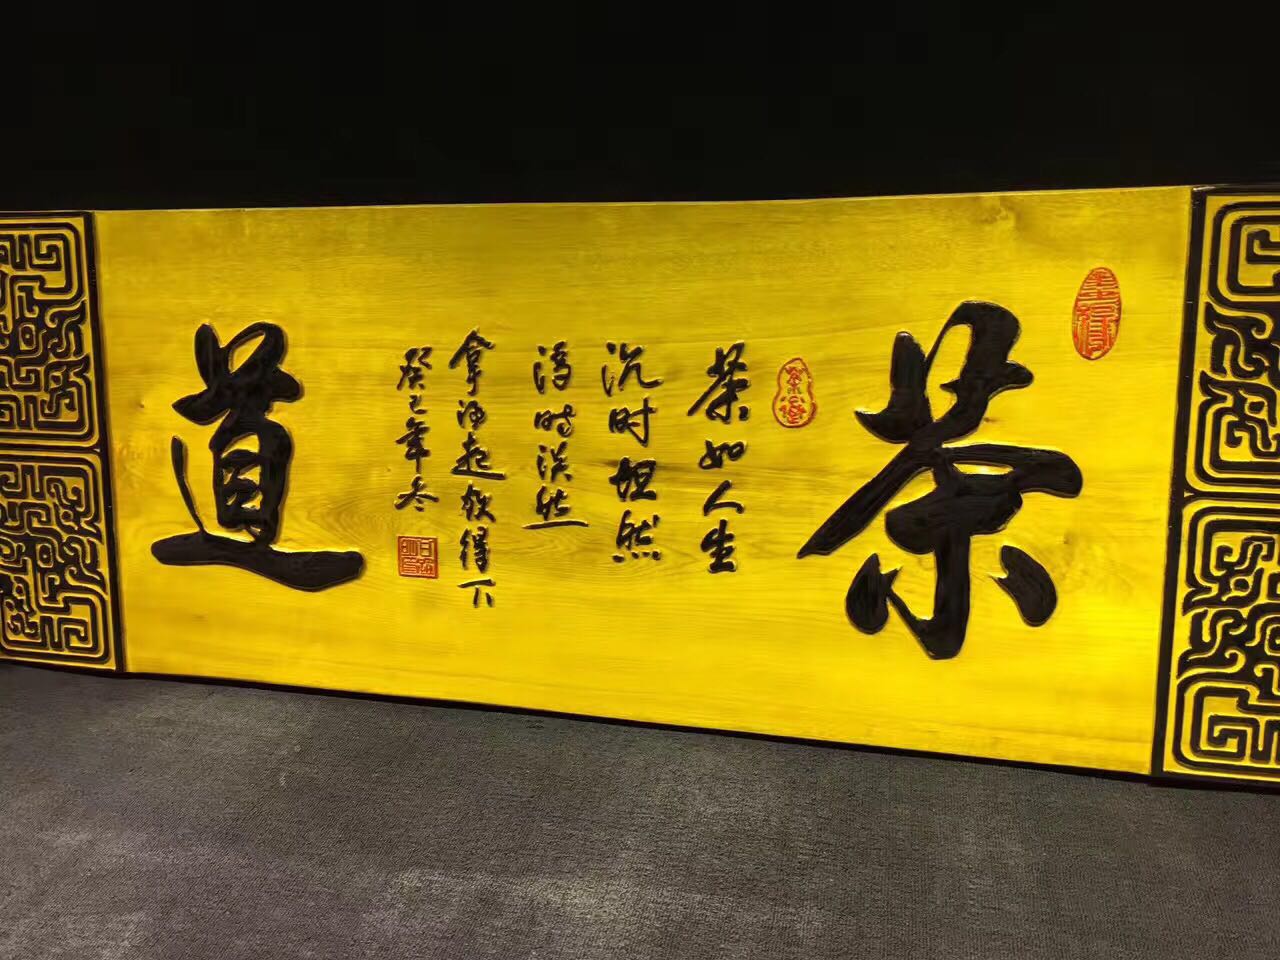 茶
茶如人生
沉时坦然
浮时淡然
拿得起放得下
癸巳年冬
道